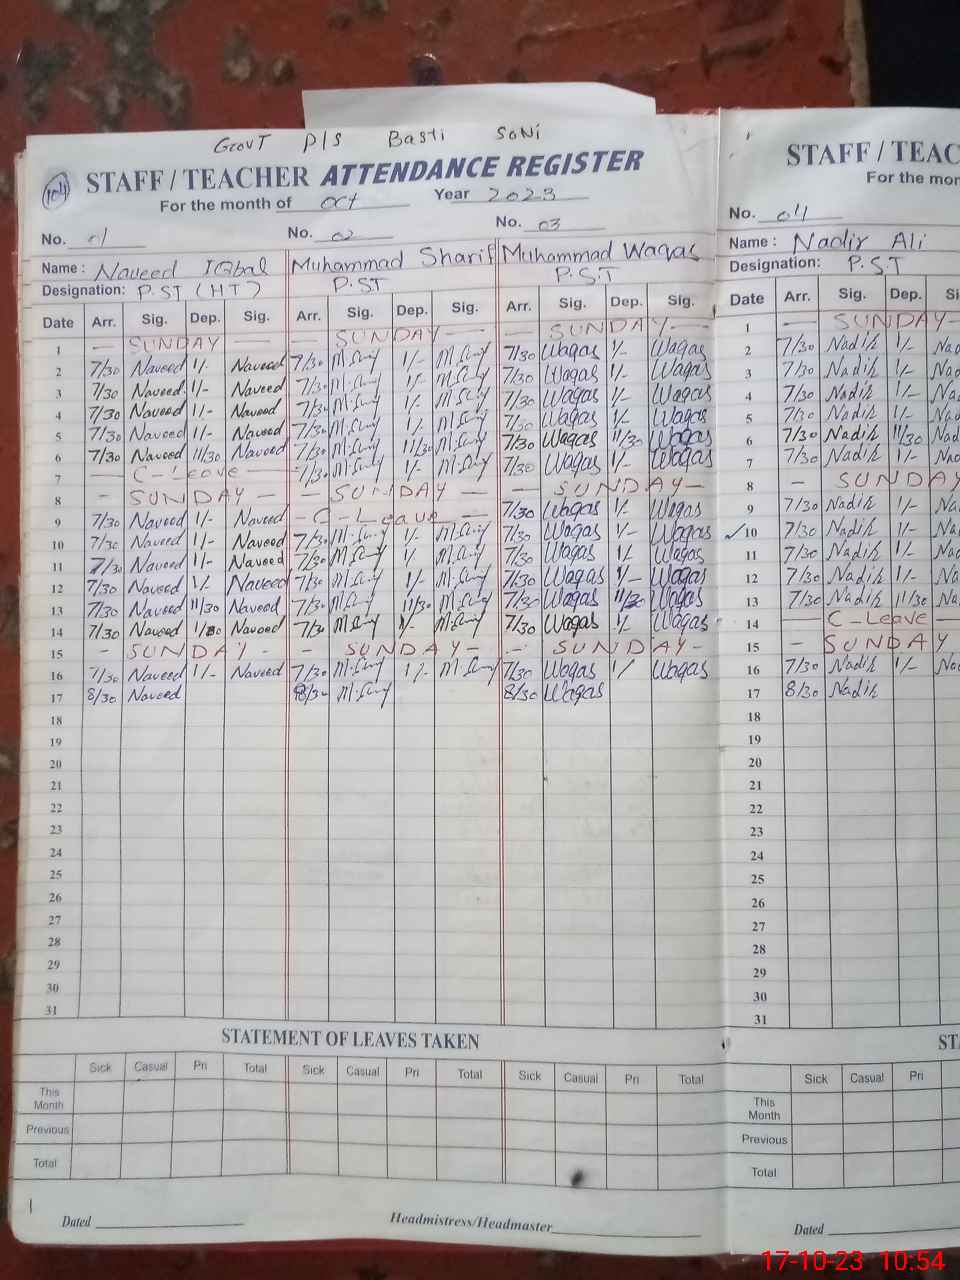 GOVT P/S Basti SONi
104 STAFF / TEACHER ATTENDANCE REGISTER
For the month of Oct Year 2023
No. 01 No. 02 No. 03
Name : Naveed IQbal Muhammad Sharif Muhammad Waqas
Designation: P.ST (HT) P.ST P.S.T
Date Arr. Sig. Dep. Sig. Arr. Sig. Dep. Sig. Arr. Sig. Dep. Sig.
1 — SUNDAY — — SUNDAY — — SUNDAY —
2 7/30 Naveed 1/- Naveed 7/30 1/- 7/30 Waqas 1/- Waqas
3 7/30 Naveed 1/- Naveed 7/30 1/- 7/30 Waqas 1/- Waqas
4 7/30 Naveed 1/- Naveed 7/30 1/- 7/30 Waqas 1/- Waqas
5 7/30 Naveed 1/- Naveed 7/30 1/- 7/30 Waqas 1/- Waqas
6 7/30 Naveed 11/30 Naveed 7/30 11/30 7/30 Waqas 11/30 Waqas
7 — C-Leave — 7/30 1/- 7/30 Waqas 1/- Waqas
8 - SUNDAY - - SUNDAY — - SUNDAY -
9 7/30 Naveed 1/- Naveed - C-Leave — 7/30 Waqas 1/- Waqas
10 7/30 Naveed 1/- Naveed 7/30 1/- 7/30 Waqas 1/- Waqas
11 7/30 Naveed 1/- Naveed 7/30 1/- 7/30 Waqas 1/- Waqas
12 7/30 Naveed 1/- Naveed 7/30 1/- 7/30 Waqas 1/- Waqas
13 7/30 Naveed 11/30 Naveed 7/30 11/30 7/30 Waqas 11/30 Waqas
14 7/30 Naveed Naveed 7/30 1/- 7/30 Waqas 1/- Waqas
15 - SUNDAY - - SUNDAY - - SUNDAY -
16 7/30 Naveed 1/- Naveed 7/30 1/- 7/30 Waqas 1/ Waqas
17 8/30 Naveed 8/30 8/30 Waqas
18
19
20
21
22
23
24
25
26
27
28
29
30
31
STATEMENT OF LEAVES TAKEN
Sick Casual Pri Total Sick Casual Pri Total Sick Casual Pri Total
This Month
Previous
Total
Dated Headmistress/Headmaster
STAFF / TEAC
For the mon
No. 04
Name : Nadir Ali
Designation: P.S.T
Date Arr. Sig. Dep. Si
1 — SUNDAY —
2 7/30 Nadir 1/- Nad
3 7/30 Nadir 1/- Nad
4 7/30 Nadir 1/- Na
5 7/30 Nadir 1/- Na
6 7/30 Nadir 11/30 Na
7 7/30 Nadir 1/- Na
8 - SUNDAY
9 7/30 Nadir 1/- Na
10 7/30 Nadir 1/- Na
11 7/30 Nadir 1/- Na
12 7/30 Nadir 1/- Na
13 7/30 Nadir 11/30 Na
14 — C-Leave —
15 — SUNDAY
16 7/30 Nadir 1/- Na
17 8/30 Nadir
18
19
20
21
22
23
24
25
26
27
28
29
30
31
ST
Sick Casual Pri
This Month
Previous
Total
Dated
17-10-23 10:54